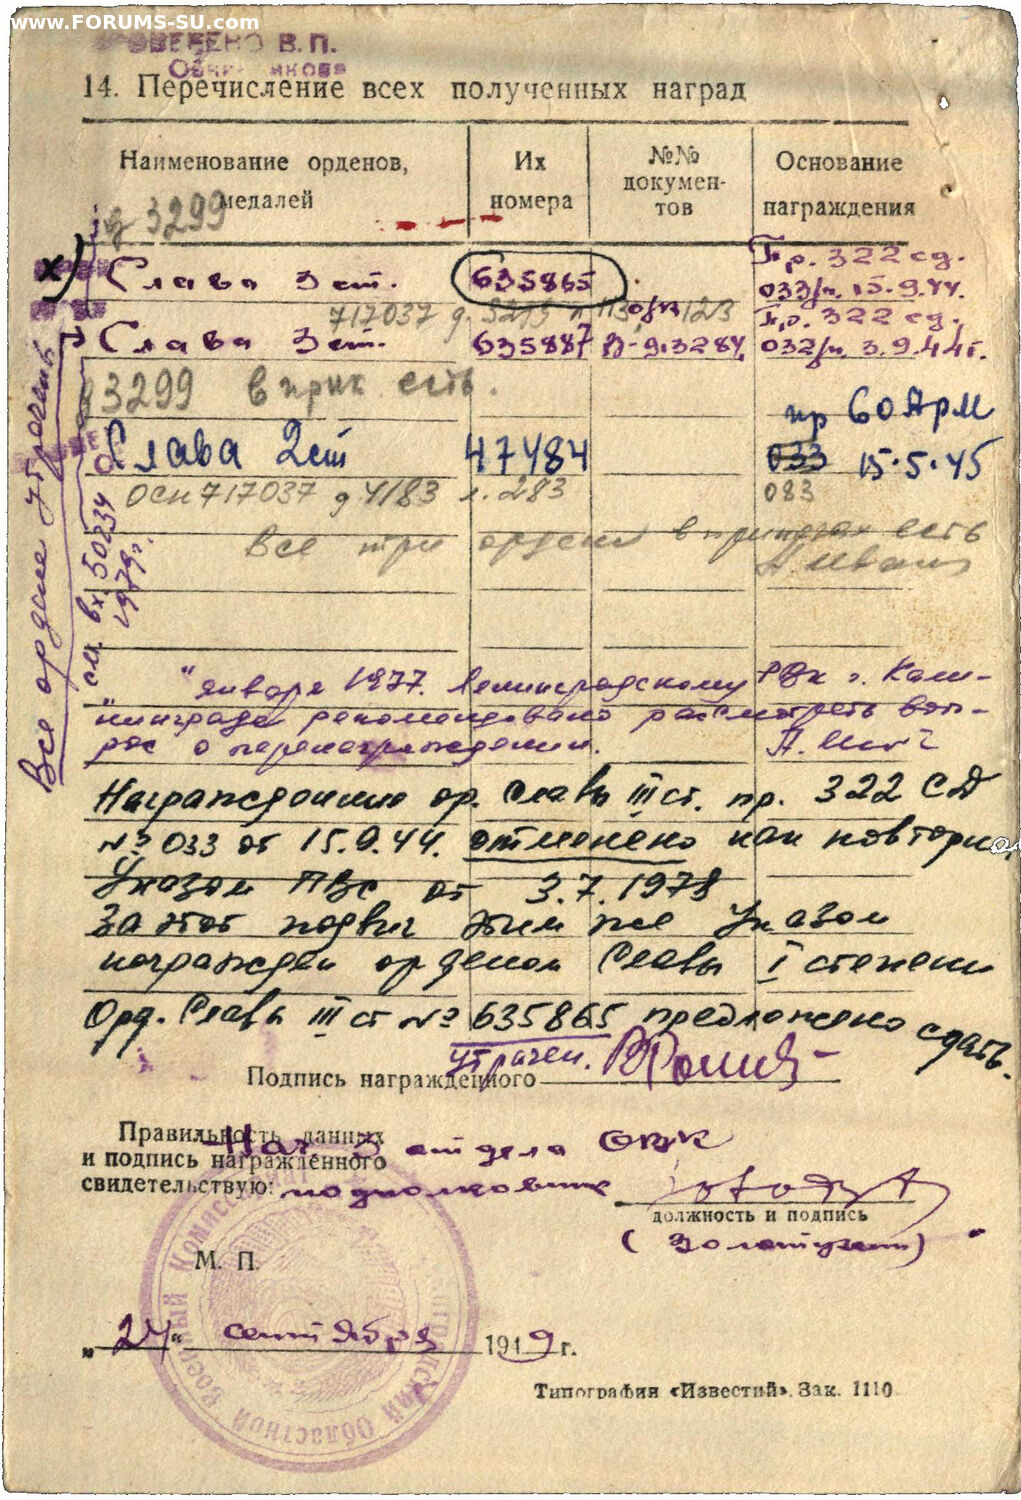 www.FORUMS-SU.com
В. П.
14. Перечисление всех полученных наград
Наименование орденов, медалей
Их номера
№№ докумен-тов
Основание награждения
3299
х) Слава 3 ст. 635865 Пр. 322 сд. 033/н. 15.9.44.
717037
Слава 3 ст. 635887 Пр. 322 сд. 032/н. 3.9.44г.
3299 в прик. есть.
Слава 2 ст 47484 пр 60 Арм 033 15.5.45
осн 717037 д 4183 л. 283 083
Все три ордена в приказах есть
Все ордена утрачены
см. вх. 50234
1979г.
" " января 1977. Ленинградскому РВк г. Кали-
нинграда рекомендовано рассмотреть воп-
рос о перенаграждении.
Награждение ор. Славы III ст. пр. 322 СД
№ 033 от 15.9.44. отменено как повторн.
Указом ПВС от 3.7.1978
За этот подвиг этим же Указом
награжден орденом Славы I степени
Орд. Славы III ст № 635865 предложено сдать.
утрачен.
Подпись награжденного
Правильность данных
и подпись награжденного
свидетельствую:
Нач 3 отдела ОВК
подполковник
должность и подпись
М. П.
Областной Военный Комиссариат
„24“ сентября 1949 г.
Типография «Известий». Зак. 1110